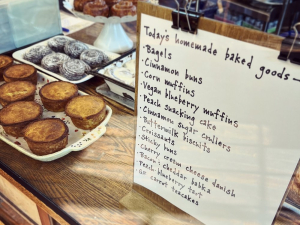 Today's homemade baked goods—
• Bagels
• Cinnamon buns
• Corn muffins
• Vegan blueberry muffins
• Peach snacking cake
• Cinnamon sugar crullers
• Buttermilk biscuits
• Croissants
• Sticky buns
• Cherry cream cheese danish
• Bacon + cheddar babka
• Peach blueberry tart
• GF carrot teacakes